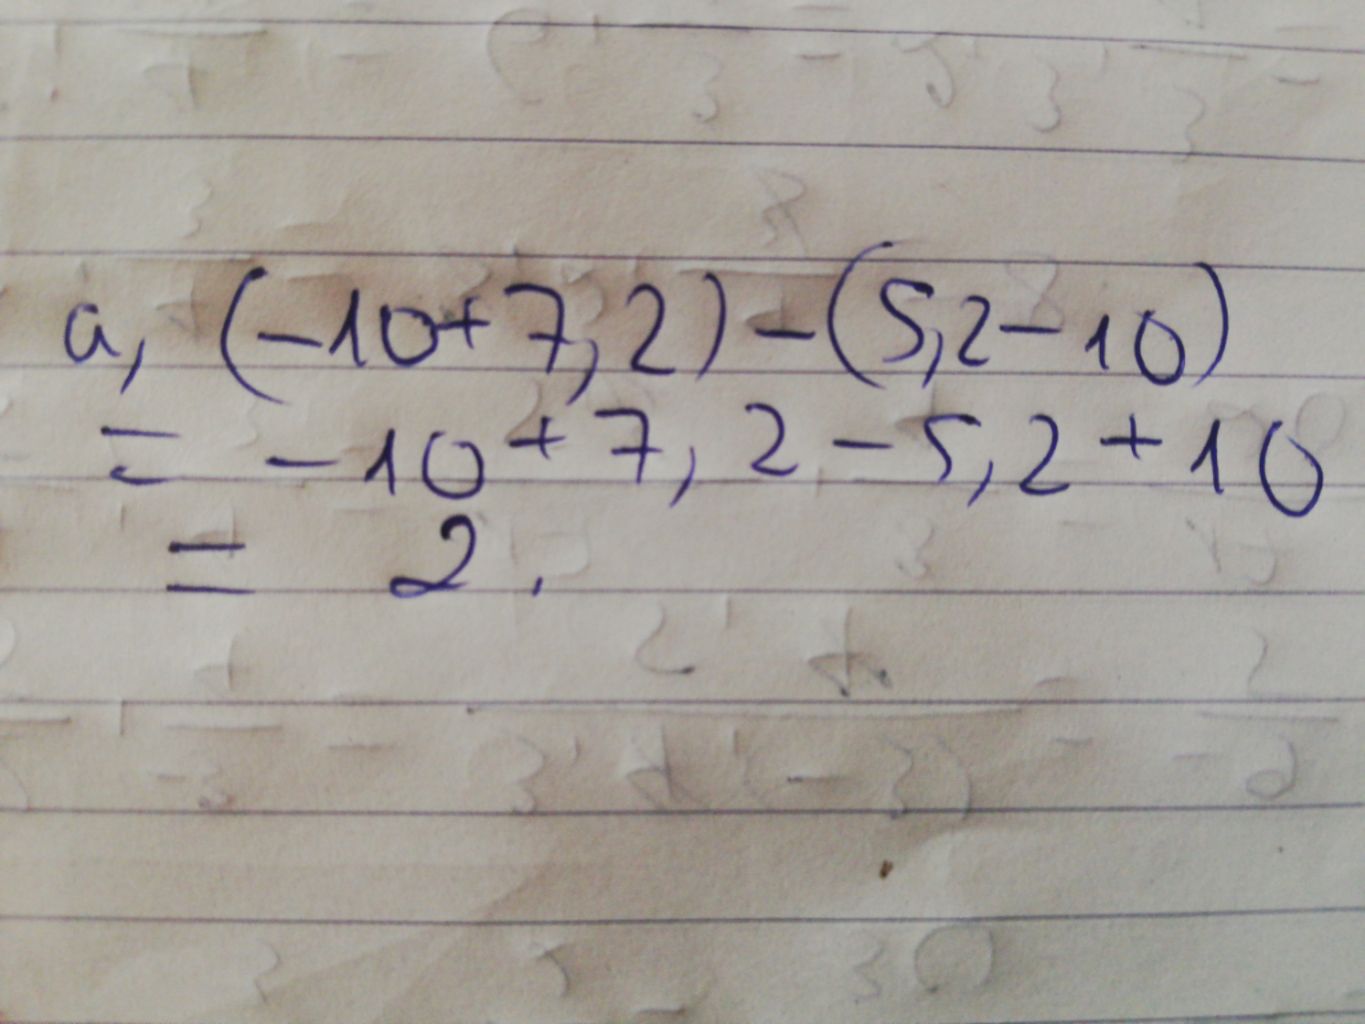 a, (-10+7,2)-(5,2-10)
= -10+7,2-5,2+10
= 2.